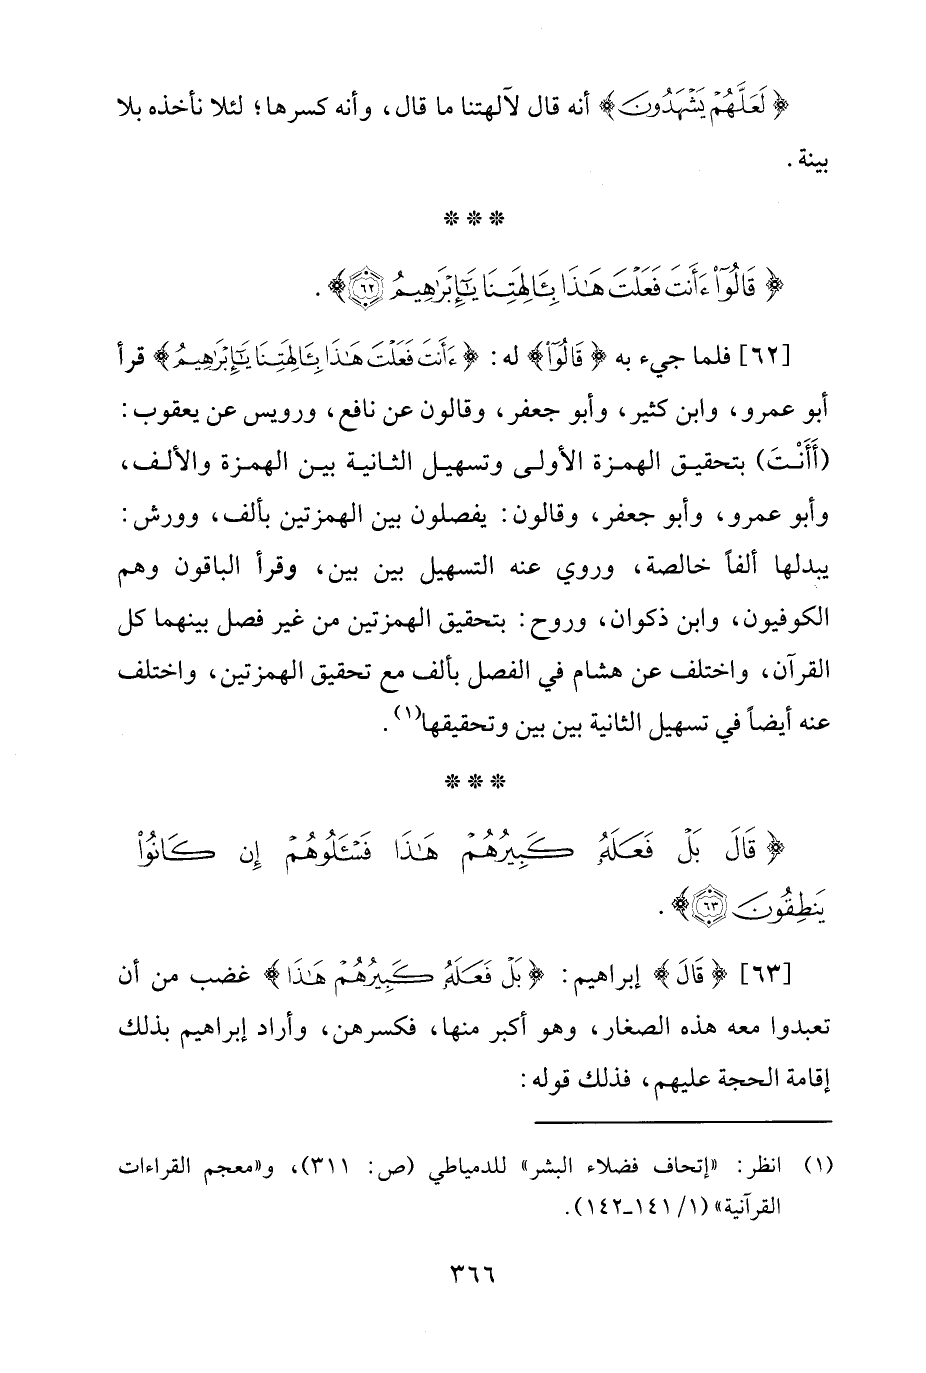 ﴿لَعَلَّهُمْ يَشْهَدُونَ﴾ أنه قال لآلهتنا ما قال، وأنه كسرها؛ لئلا نأخذه بلا
بينة.
* * *
﴿قَالُوٓا۟ ءَأَنتَ فَعَلْتَ هَٰذَا بِـَٔالِهَتِنَا يَٰٓإِبْرَٰهِيمُ ﴿٦٢﴾﴾.
[٦٢] فلما جيء به ﴿قَالُوٓا۟﴾ له: ﴿ءَأَنتَ فَعَلْتَ هَٰذَا بِـَٔالِهَتِنَا يَٰٓإِبْرَٰهِيمُ﴾ قرأ
أبو عمرو، وابن كثير، وأبو جعفر، وقالون عن نافع، ورويس عن يعقوب:
(أَأَنْتَ) بتحقيق الهمزة الأولى وتسهيل الثانية بين الهمزة والألف،
وأبو عمرو، وأبو جعفر، وقالون: يفصلون بين الهمزتين بألف، وورش:
يبدلها ألفاً خالصة، وروي عنه التسهيل بين بين، وقرأ الباقون وهم
الكوفيون، وابن ذكوان، وروح: بتحقيق الهمزتين من غير فصل بينهما كل
القرآن، واختلف عن هشام في الفصل بألف مع تحقيق الهمزتين، واختلف
عنه أيضاً في تسهيل الثانية بين بين وتحقيقها(١).
* * *
﴿قَالَ بَلْ فَعَلَهُۥ كَبِيرُهُمْ هَٰذَا فَسْـَٔلُوهُمْ إِن كَانُوا۟
يَنطِقُونَ ﴿٦٣﴾﴾.
[٦٣] ﴿قَالَ﴾ إبراهيم: ﴿بَلْ فَعَلَهُۥ كَبِيرُهُمْ هَٰذَا﴾ غضب من أن
تعبدوا معه هذه الصغار، وهو أكبر منها، فكسرهن، وأراد إبراهيم بذلك
إقامة الحجة عليهم، فذلك قوله:
(١) انظر: «إتحاف فضلاء البشر» للدمياطي (ص: ٣١١)، و«معجم القراءات
القرآنية» (١/ ١٤١-١٤٢).
٣٦٦